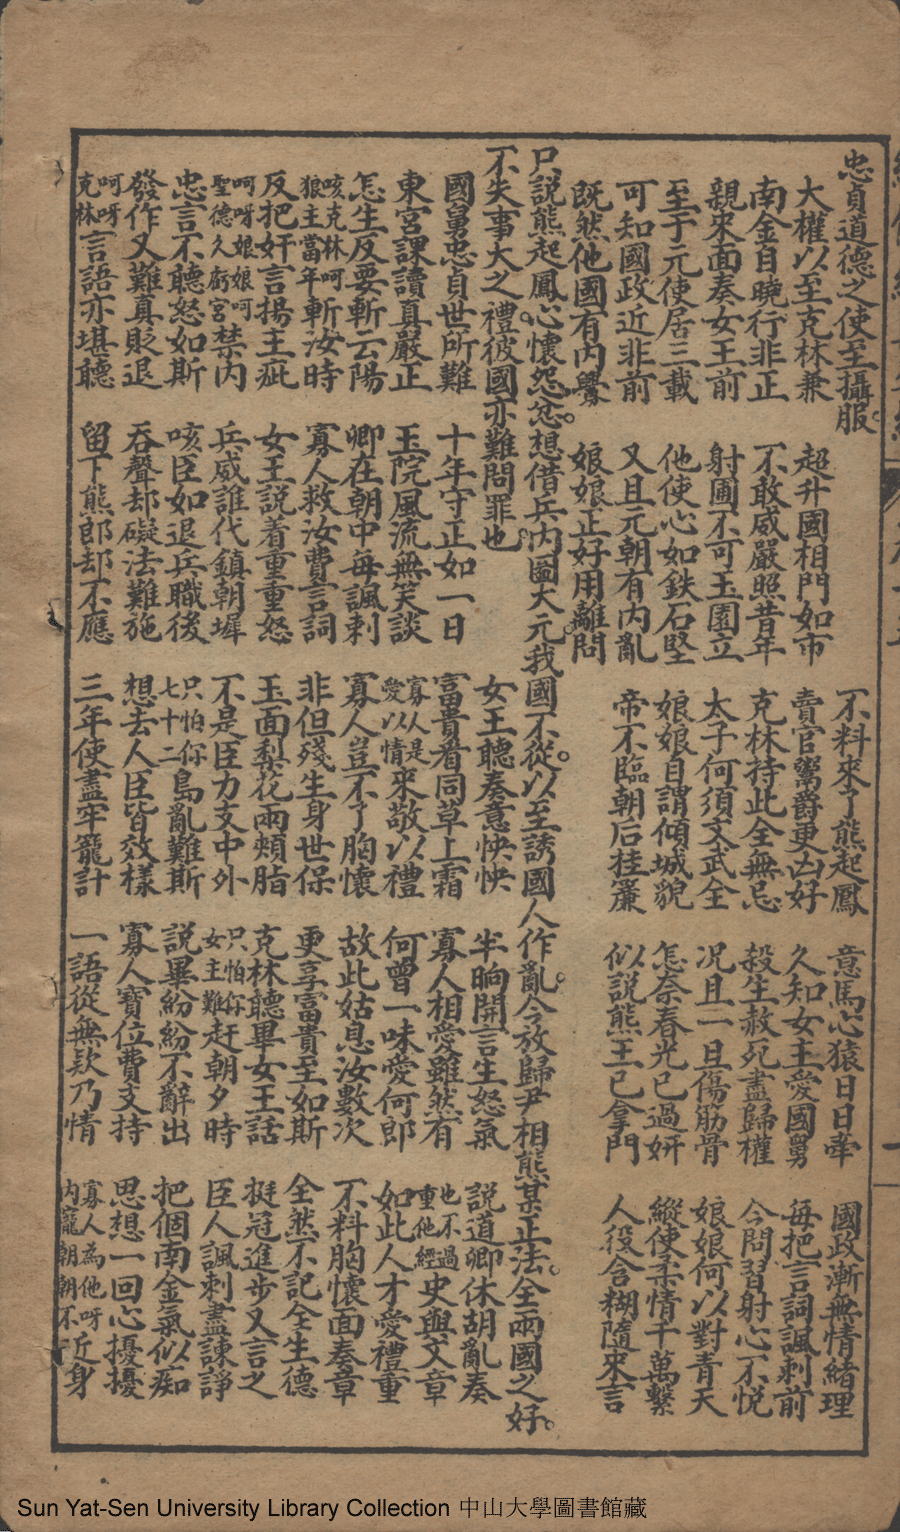 忠貞道德之使至攝服。
大權以至克林兼　超升國相門如市　不料來了熊起鳳　意馬心猿日日牽　國政漸無情緒理
南金自曉行非正　不敢威嚴照昔年　賣官鬻爵更凶好　久知女主愛國舅　每把言詞諷刺前
親來面奏女王前　射圃不可玉園立　克林持此全無忌　殺生赦死盡歸權　今問習射心不悅
至于元使居三載　他使心如鉄石堅　太子何須文武全　況且一旦傷筋骨　娘娘何以對青天
可知國政近非前　又且元朝有內亂　娘娘自謂傾城貌　怎奈春光已過妍　縱使柔情千萬繫
既然他國有內釁　娘娘正好用離問　帝不臨朝后挂簾　似說熊王已拿門　人役含糊隨來言
只說熊起鳳心懷怨忿。想借兵內圖大元。我國不從。以至誘國人作亂。今放歸尹相熊某正法。全兩國之好。
不失事大之禮。彼國亦難問罪也。　女王聽奏意怏怏　半晌開言生怒氣　說道卿休胡亂奏
國舅忠貞世所難　十年守正如一日　富貴看同草上霜　寡人相愛雖然有　也不過重他經史與文章
東宮課讀真嚴正　玉院風流無笑談　寡人是愛以情來敬以禮　何曾一味愛何郎　如此人才愛禮重
怎生反要斬云陽　卿在朝中每諷剌　寡人豈不了胸懷　故此姑息汝數次　不料胸懷面奏章
咳克林呵狼主當年斬汝時　寡人救汝費言詞　非但殘生身世保　更享富貴至如斯　全然不記全生德
反把奸言揚主疵　女王說着重重怒　玉面梨花雨頰脂　克林聽畢女王話　挺冠進步又言之
呵呀娘娘呵聖德久宮禁內　兵威誰代鎮朝墀　不是臣力支中外　只怕你女主難赶朝夕時　臣人諷刺盡諫諍
忠言不聽怒如斯　咳臣如退兵職後　只怕你七十二島亂難斯　說畢紛紛不辭出　把個南金氣似痴
發作又難真貶退　吞聲却礙法難施　想去人臣皆效樣　寡人寶位費支持　思想一回心擾擾
呵呀克林言語亦堪聽　留下熊郎却不應　三年使盡牢籠計　一語從無欵乃情　寡人為他呀內寵朝朝不近身
Sun Yat-Sen University Library Collection 中山大學圖書館藏